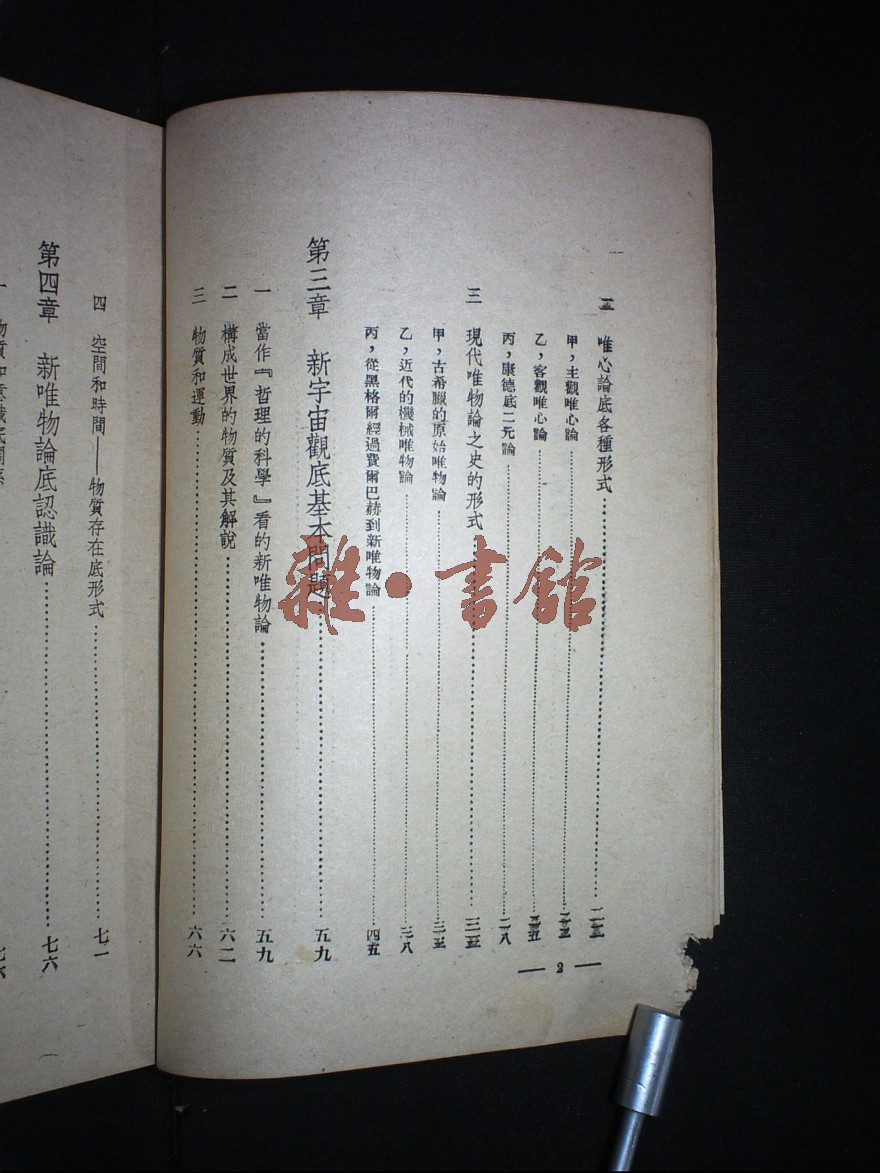 唯心論底各種形式
甲，主觀唯心論
乙，客觀唯心論
丙，康德底二元論 二八
三 現代唯物論之史的形式 三五
甲，古希臘的原始唯物論 三五
乙，近代的機械唯物論 三八
丙，從黑格爾經過費爾巴赫到新唯物論 四五
第三章 新宇宙觀底基本問題 五九
一 當作『哲理的科學』看的新唯物論 五九
二 構成世界的物質及其解說 六二
三 物質和運動 六六
— 2 —
四 空間和時間——物質存在底形式 七一
第四章 新唯物論底認識論 七六
一 物質和意識底關係 七六
雜·書館